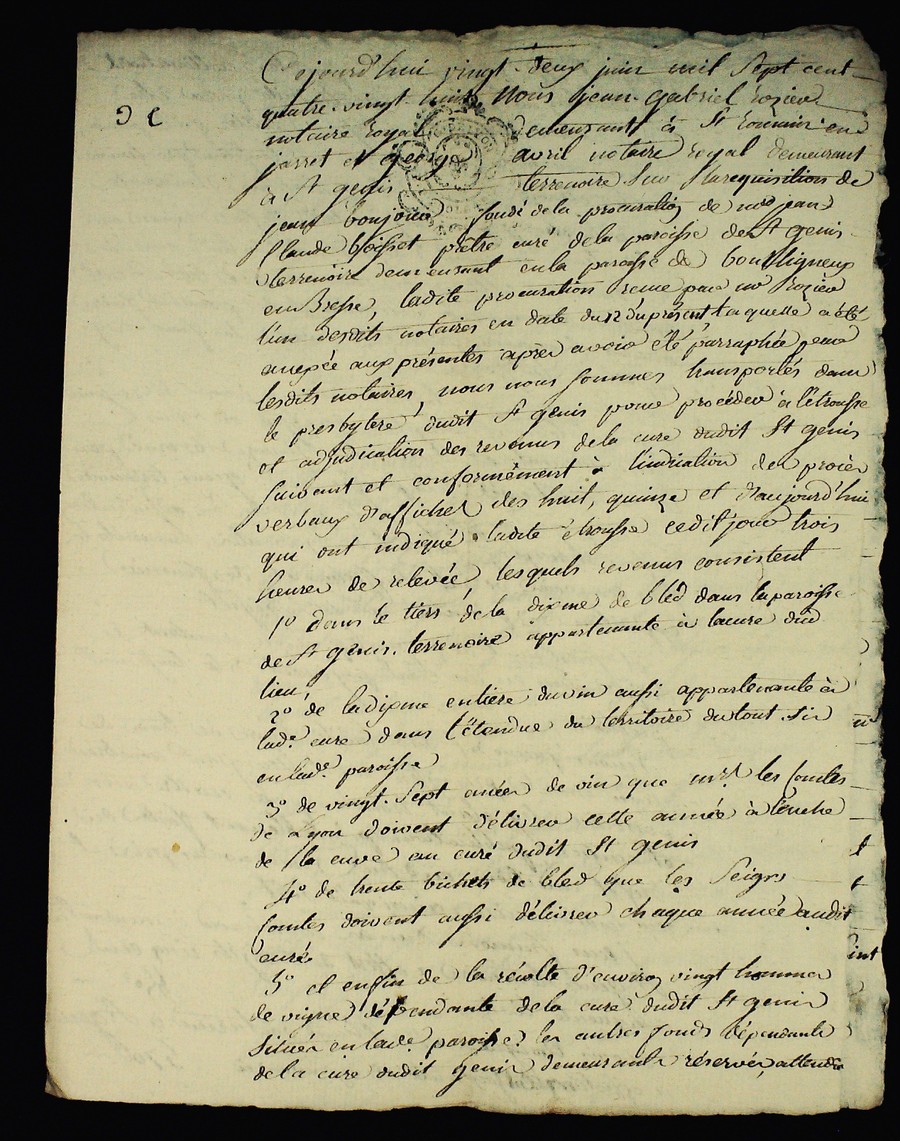 Cejourd'hui vingt-deux juin mil sept cent
quatre-vingt huit Nous jean-gabriel rozier
notaire royal demeurant à St romain en
jarret et george avril notaire royal demeurant
à St genis terrenoire sur la requisition de
jean boujour fondé de la procuration de mre jean
Claude boisset prêtre curé de la paroisse de St genis
terrenoire demeurant en la paroisse de bouligneux
en Bresse, ladite procuration recue par me rozier
l'un desdits notaires en date du 12 du présent, laquelle a été
anexée aux présentes après avoir été parraphée par
lesdits notaires, nous nous sommes transportés dans
le presbytere dudit St genis pour procéder à l'étrousse
et adjudication des revenus de la cure dudit St genis
suivant et conformément à l'indication des procès
verbaux d'affiches des huit, quinze et d'aujourd'hui
qui ont indiqué ladite étrousse cedit jour trois
heures de relevée, lesquels revenus consistent
1º dans le tiers de la dixme de bled dans la paroisse
de St genis-terrenoire appartenante à la cure dud
lieu,
2º de la dixme entiere du vin aussi appartenante à
lade cure dans l'étendue du territoire du tout sis
en lade paroisse
3º de vingt-sept anées de vin que mrs les Comtes
de Lyon doivent délivrer cette année à l'enche
de la cuve au curé dudit St genis
4º de trente bichets de bled que les Seigrs
Comtes doivent aussi délivrer chaque année audit
curé
5º et enfin de la récolte d'environ vingt hommes
de vigne dépendante de la cure dudit St genis
située en lade paroisse, les autres fonds dépendants
de la cure dudit genis demeurants réservés, attendu